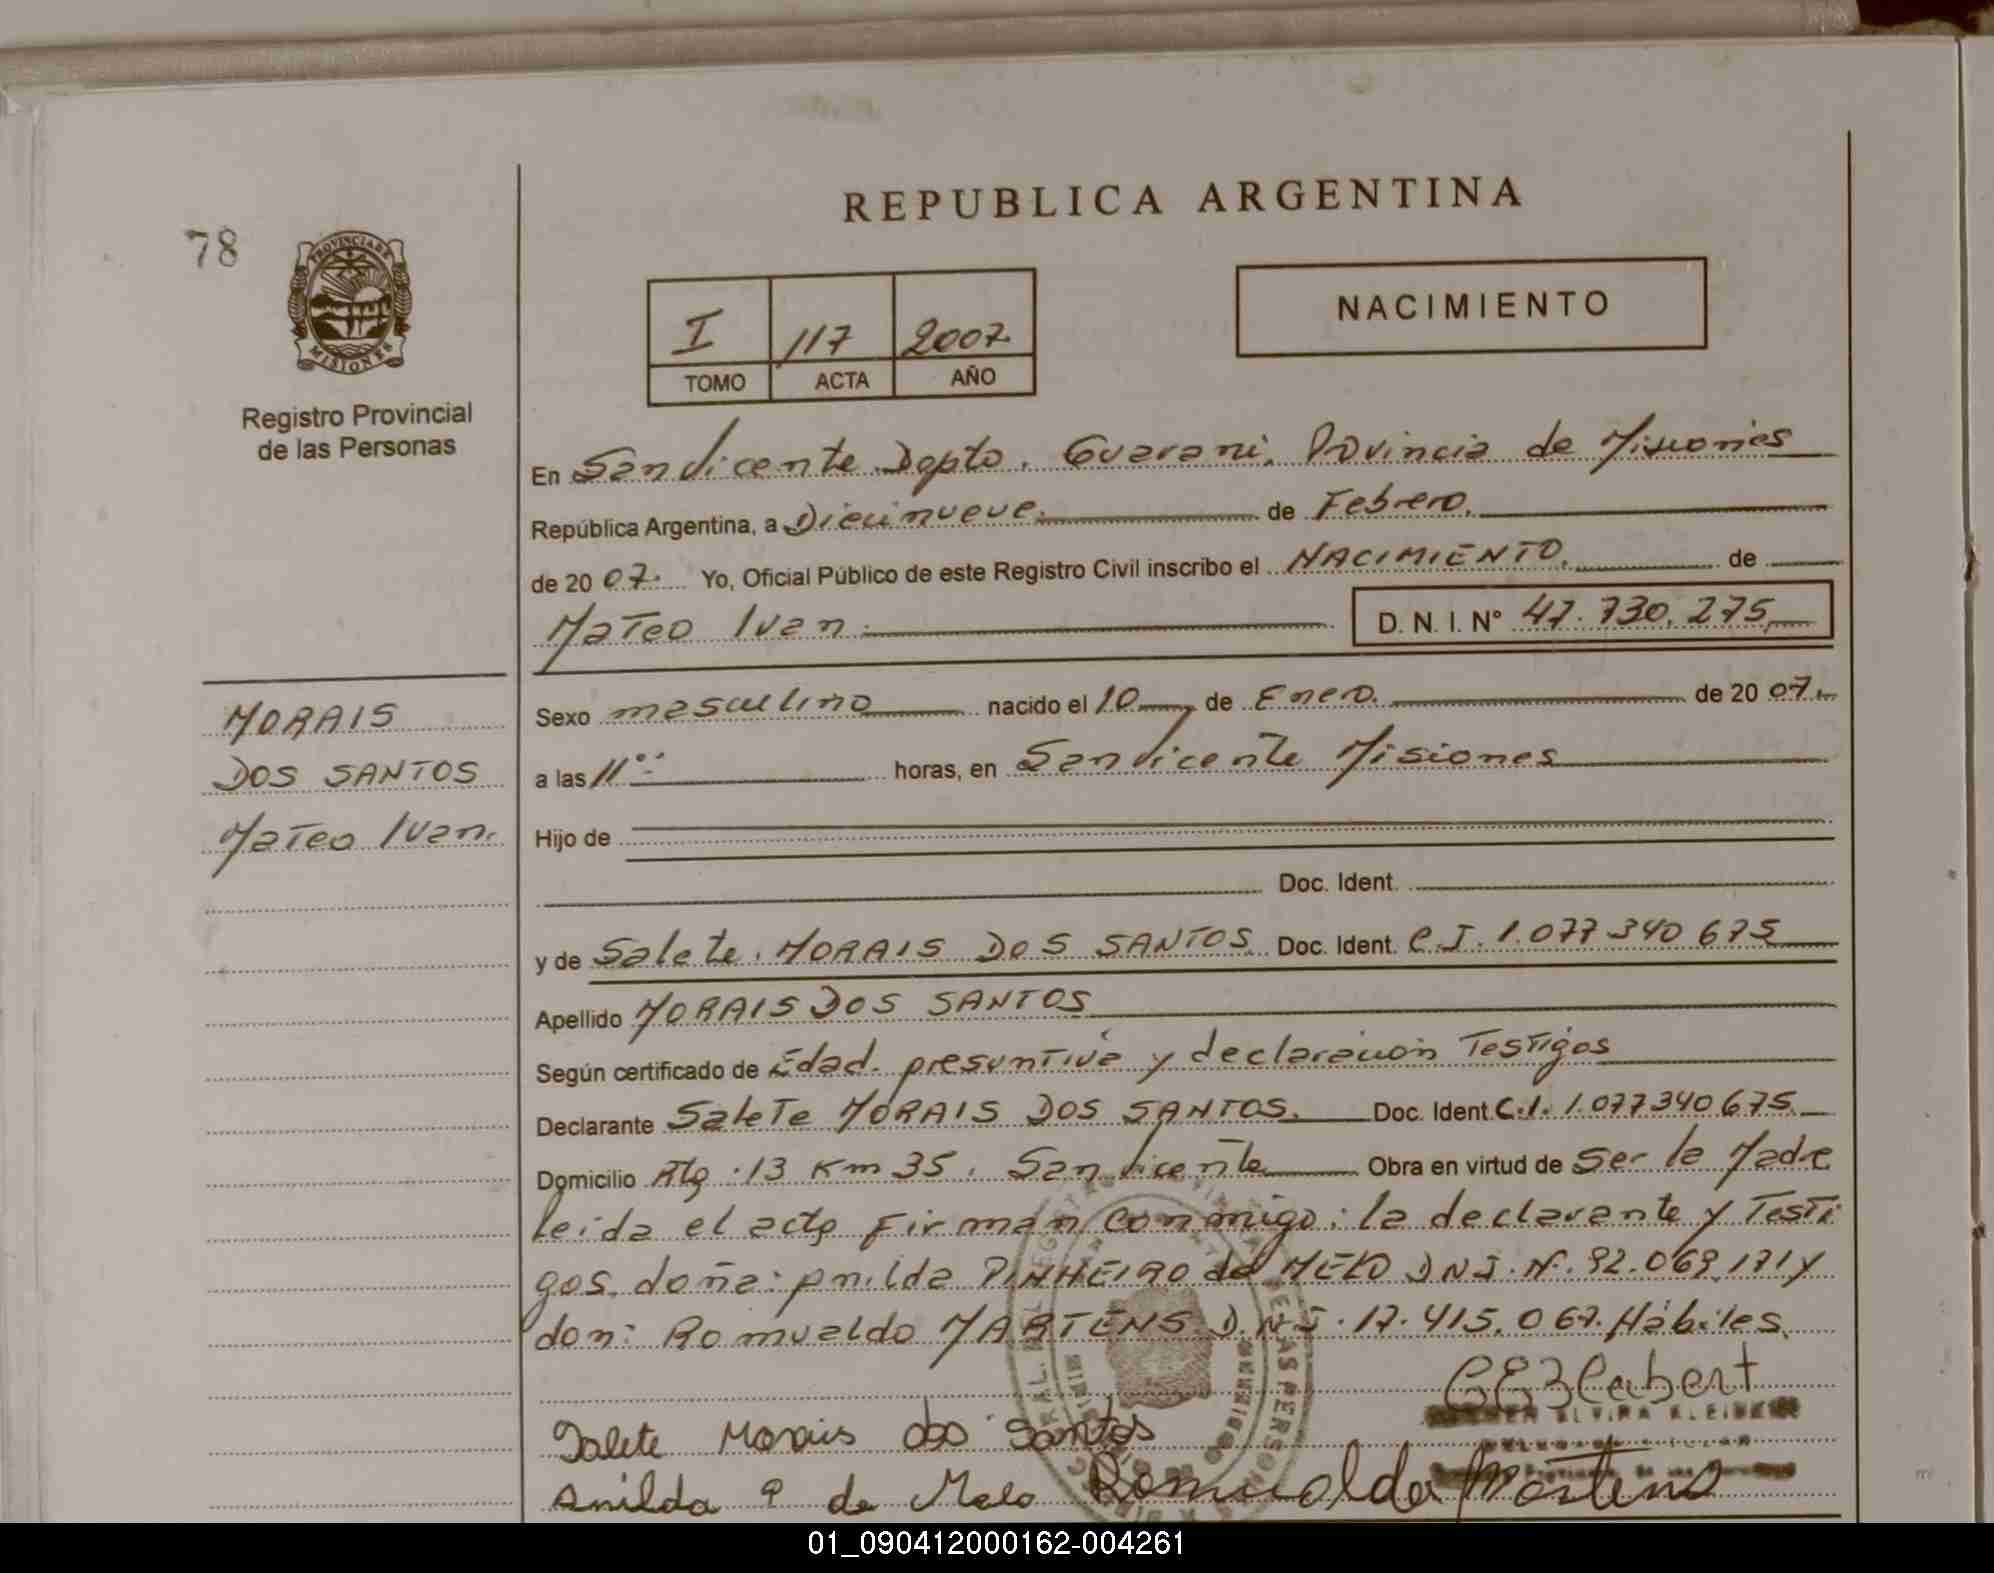 REPUBLICA ARGENTINA
78
PROVINCIA DE
MISIONES
Registro Provincial
de las Personas
I 117 2007.
TOMO ACTA AÑO
NACIMIENTO
En San Vicente Depto. Guarani. Provincia de Misiones
República Argentina, a Diecinueve. de Febrero.
de 20 07. Yo, Oficial Público de este Registro Civil inscribo el NACIMIENTO. de
Mateo Ivan. D. N. I. N° 47.730.275
MORAIS
DOS SANTOS
Mateo Ivan.
Sexo masculino nacido el 10 de Enero. de 20 07.
a las 11°° horas, en San Vicente Misiones
Hijo de
Doc. Ident.
y de Salete. MORAIS DOS SANTOS. Doc. Ident. C.I. 1.077340675
Apellido MORAIS DOS SANTOS
Según certificado de Edad. presuntiva y declaración Testigos
Declarante Salete MORAIS DOS SANTOS. Doc. Ident C.I. 1.077340675
Domicilio Rtg. 13 Km 35. San Vicente Obra en virtud de Ser la Madre
leida el acta Firman conmigo: la declarante y Testi
gos. doña: Anilda PINHEIRO de MELO DNI. N°. 92.069.171 y
don: Romualdo MARTENS. D.N.I. 17.415.067. Hábiles.
Salete Morais dos Santos
ELVIRA
Anilda P de Melo Romualdo Martens
01_090412000162-004261